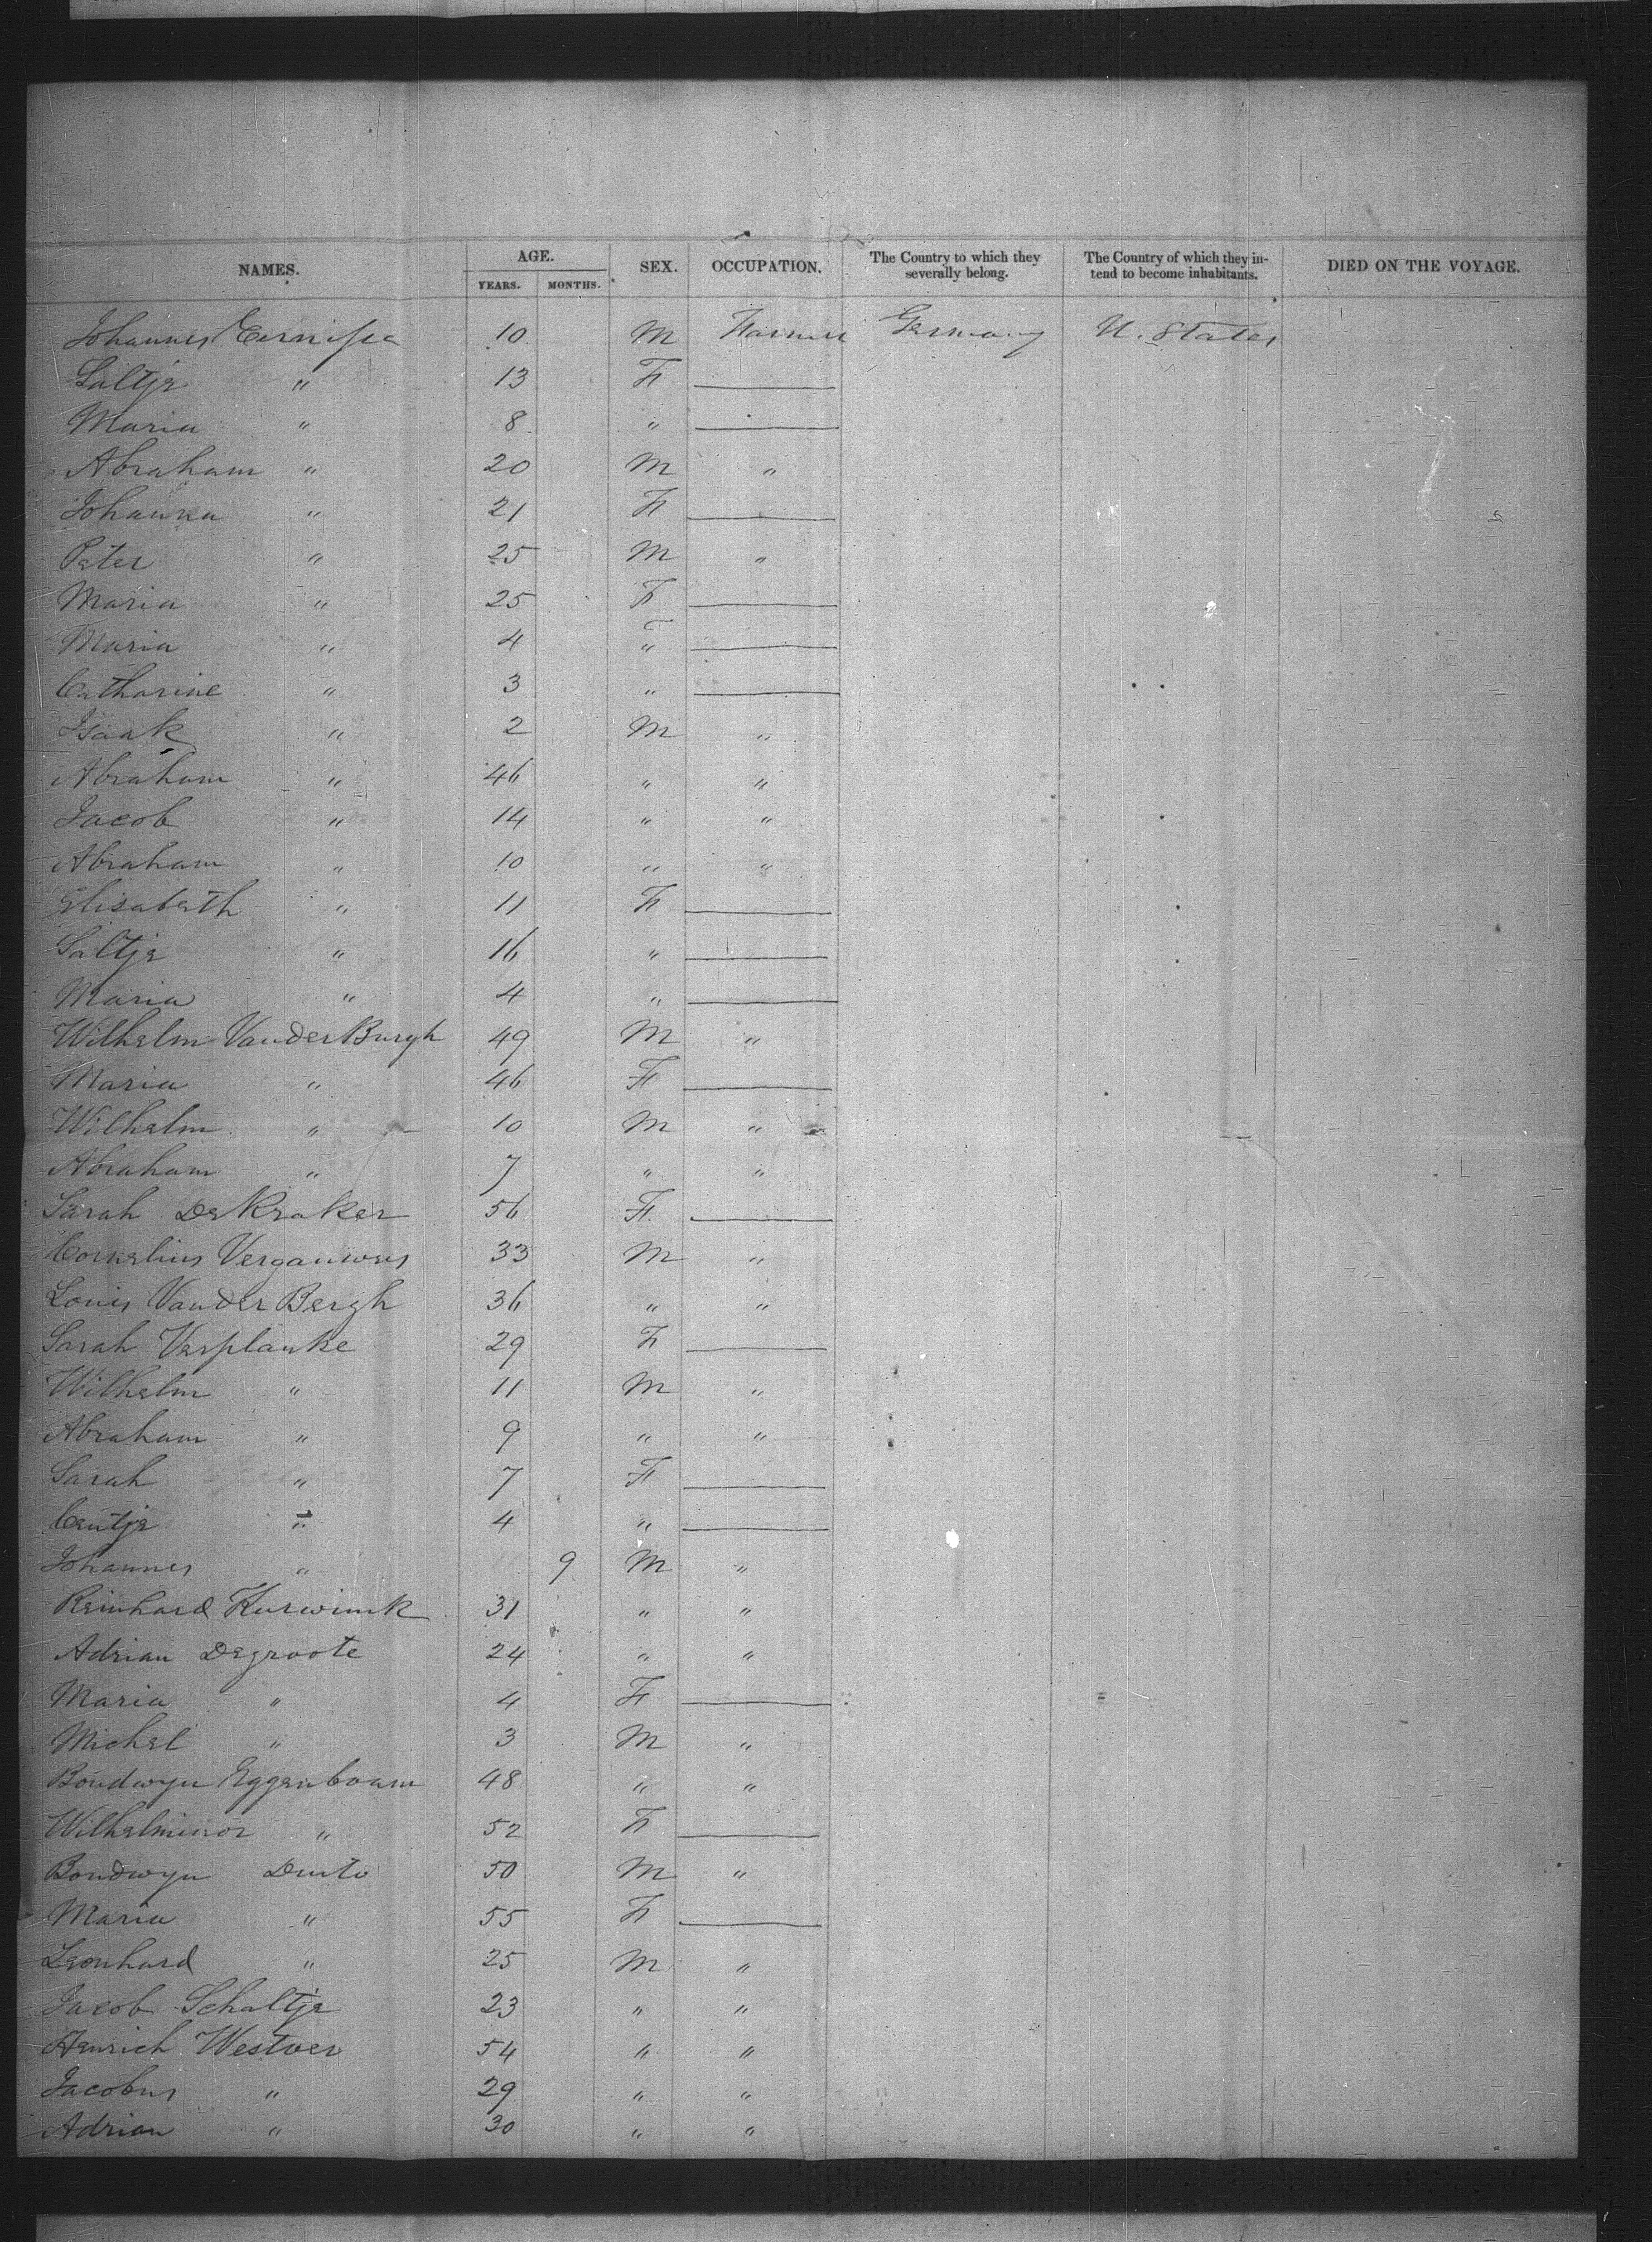 NAMES. AGE. SEX. OCCUPATION. The Country to which they severally belong. The Country of which they in- tend to become inhabitants. DIED ON THE VOYAGE.
YEARS. MONTHS.
Johannes 10 M Farmer Germany U. States
Saltje " 13 F
Maria " 8 "
Abraham " 20 M "
Johanna " 21 F
Peter " 25 M "
Maria " 25 F
Maria " 4 "
Catharine " 3 "
Isaak " 2 M "
Abraham " 46 " "
Jacob " 14 " "
Abraham " 10 " "
Elisabeth " 11 F
Saltje " 16 "
Maria " 4 "
Wilhelm Van der Burgh 49 M "
Maria " 46 F
Wilhelm " 10 M "
Abraham " 7 " "
Sarah DeKraker 56 F
Cornelius Vergauwes 33 M "
Louis Van der Bergh 36 " "
Sarah Verplanke 29 F
Wilhelm " 11 M "
Abraham " 9 " "
Sarah " 7 F
" 4 "
Johannes " 9 M "
Reinhard 31 " "
Adrian Degroote 24 " "
Maria " 4 F
Michel " 3 M "
Boudwyn Eggenboam 48 " "
" 52 F
Boudwyn 50 M "
Maria " 55 F
Leonhard " 25 M "
Jacob Schaltje 23 " "
Henrich Westver 54 " "
Jacobus " 29 " "
Adrian " 30 " "